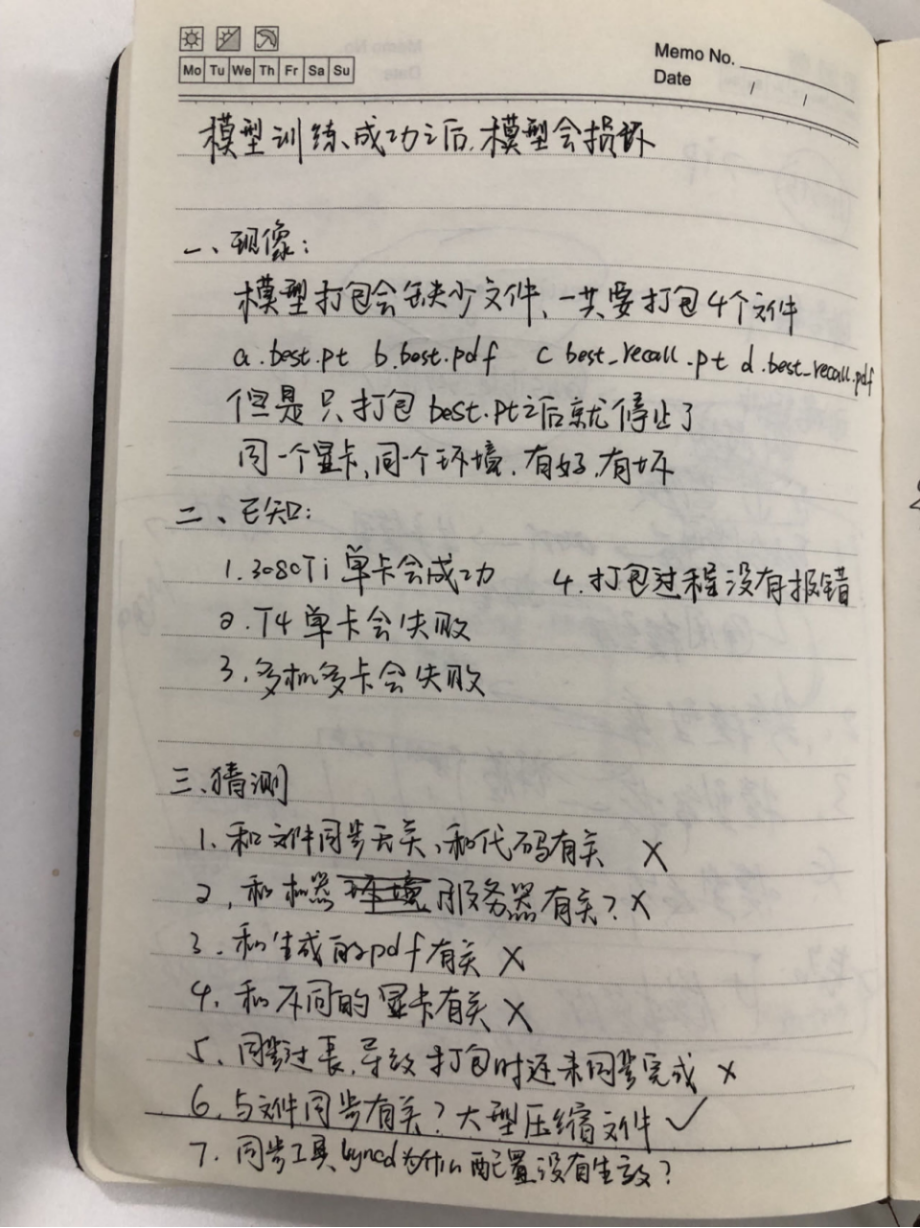 Mo Tu We Th Fr Sa Su
Memo No.
Date / /
模型训练成功之后,模型会损坏
一、现像:
模型打包会缺少文件、一共要打包4个文件
a.best.pt b.best.pdf c best_recall.pt d.best_recall.pdf
但是只打包best.pt之后就停止了
同一个显卡,同个环境.有好,有坏
二、已知:
1.3080Ti单卡会成功 4.打包过程没有报错
2.T4单卡会失败
3.多机多卡会失败
三.猜测
1.和文件同步无关、和代码有关 X
2,和机器服务器有关?X
3.和生成的pdf有关 X
4.和不同的显卡有关 X
5、同步过长,导致打包时还未同步完成 X
6.与文件同步有关?大型压缩文件 ✓
7.同步工具 配置没有生效?